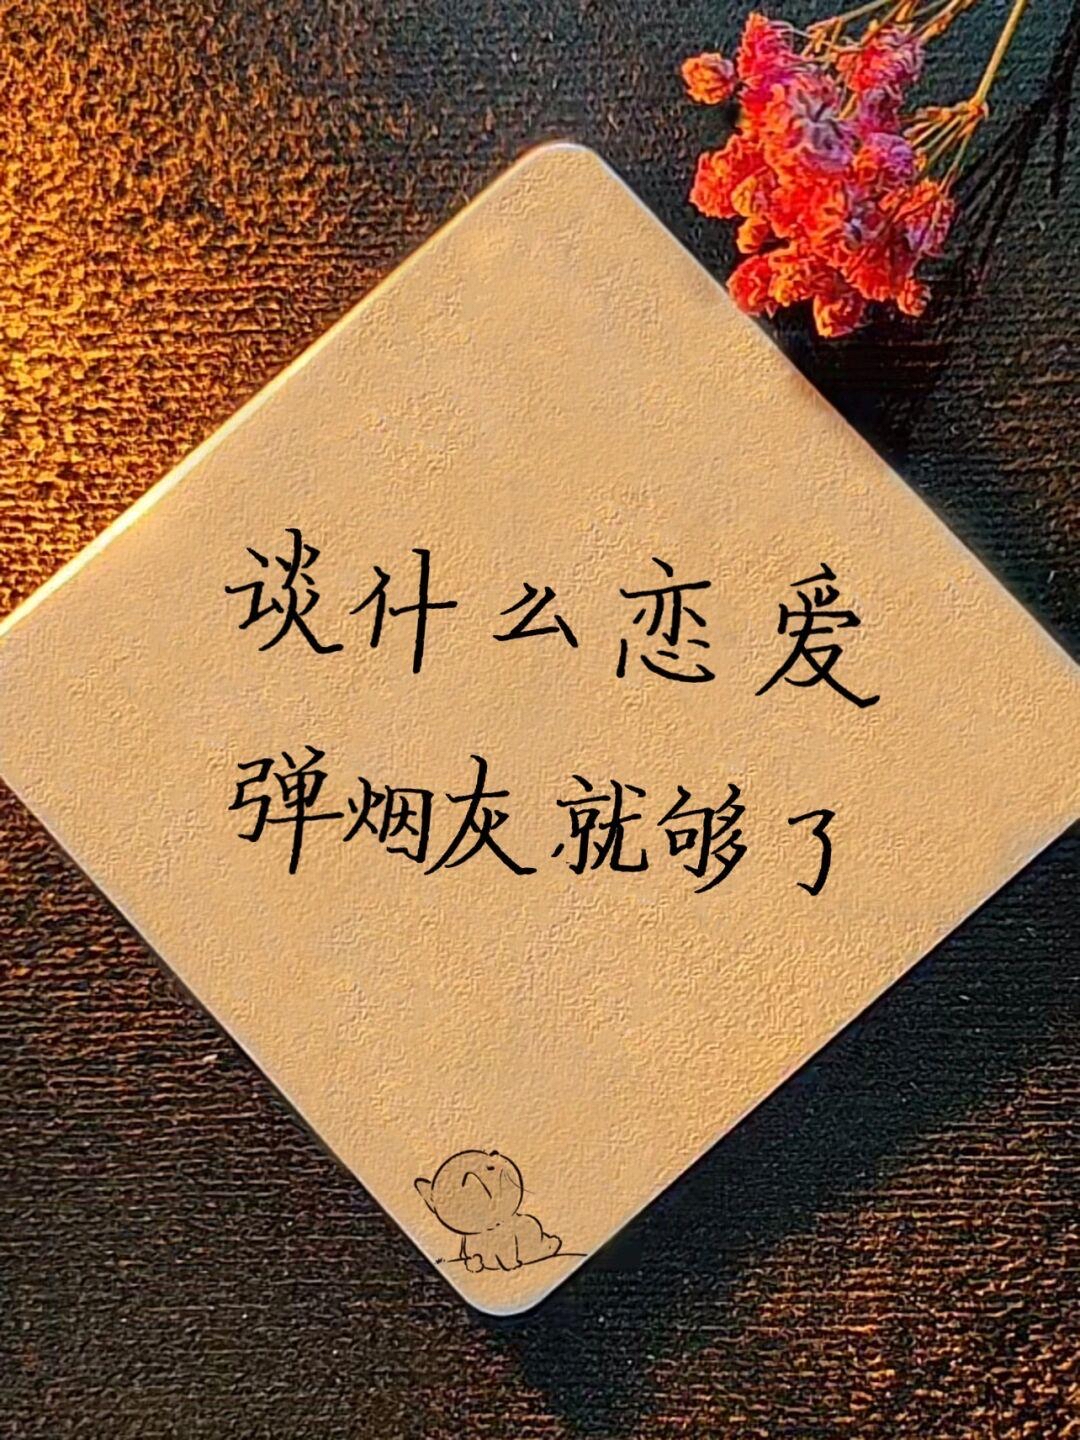 谈什么恋爱
弹烟灰就够了